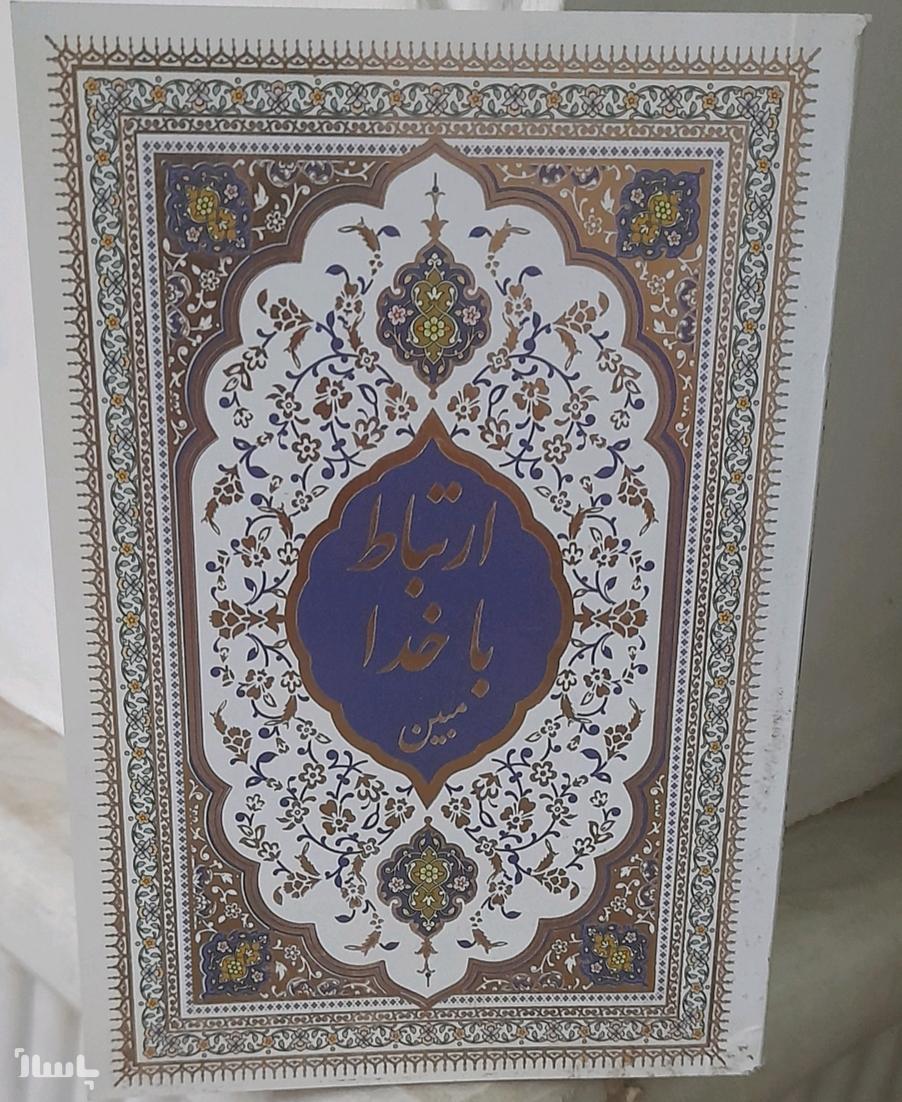 ارتباط
با خدا
مبین
پاسلا